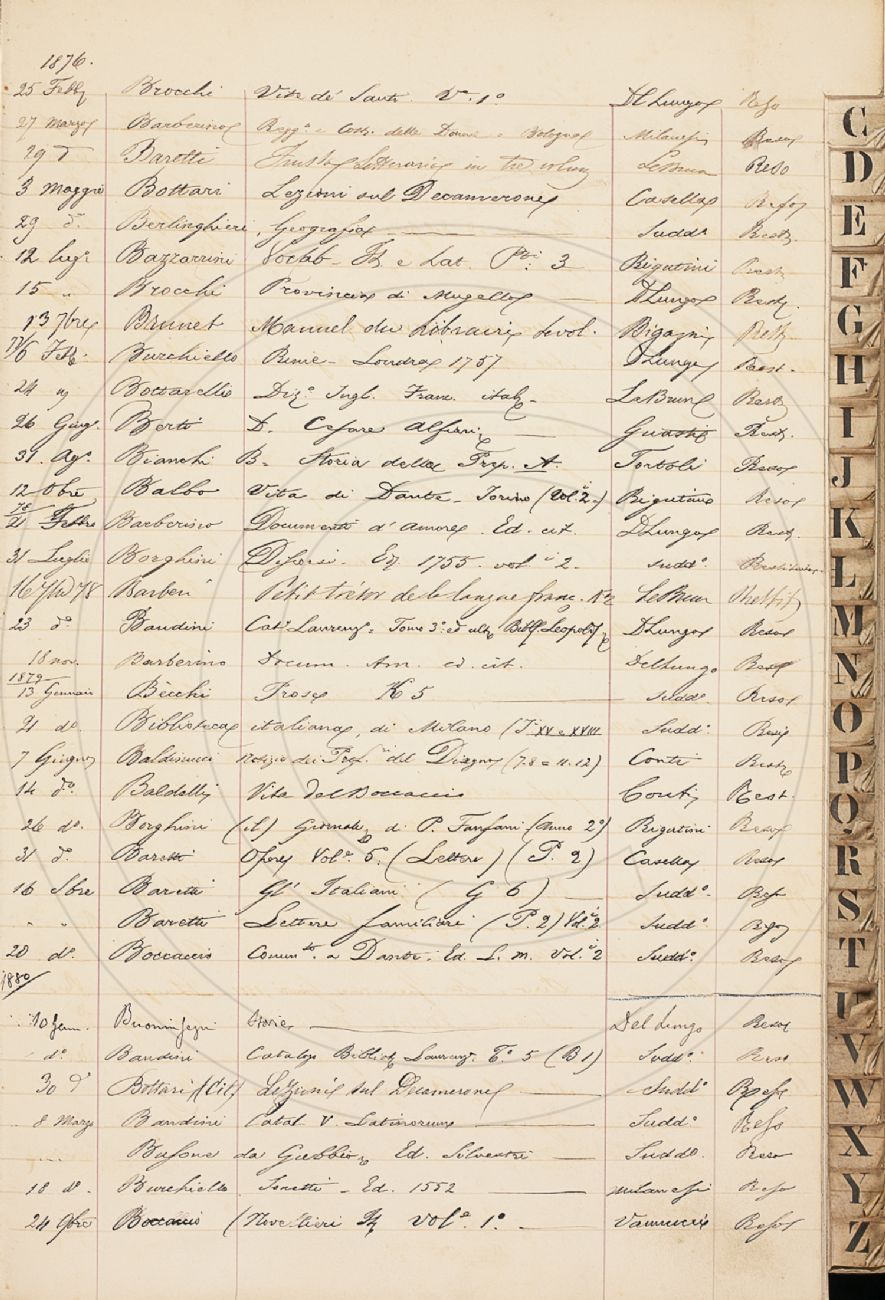 1876.
25 Febb Brocchi Vite de' Santi. V.e 1º DLungo Reso
27 Marzo Barberino Regg.o e Cost. delle Donne = Bologna Milanesi Reso
29 dº Barotti in tre volumi LeBrun Reso
3 Maggio Bottari Lezioni sul Decamerone Casella Reso
29 dº Berlinghieri, Geografia Suddº Rest.
12 lugº Bazzarini Vocab- It. e Lat. P.ti 3 Rigutini Rest.
15 " Brocchi Provincia di Mugello DLungo Rest.
13 7bre Brunet Manuel du Libraire 6 vol. Bigazzi Rest.
77/6 Feb. Burchiello Rime - Londra 1757 DLungo Rest.
24 " Bottarelli Dizº Ingl. Franc. ital. LeBrun Rest.
26 Giug. Berti D. Cesare Alfieri Guasti Rest.
31. Agº. Bianchi B. Storia della Prep. A. Tortoli Reso
12 8bre Balbo Vita di Dante - Torino (Vol. 2.) Rigutini Reso
78/21 Febb. Barberino Documenti d'Amore. Ed. cit. DLungo Rest.
31 Luglio Borghini Discorsi. Ed. 1755. vol. i 2. Suddº. Restituito
16 78 Barberi Petit trésor de la langue franc. K2 LeBrun
23 dº Bandini Catº Laurenz. Tomo 3º ed ultº Bibl. Leopold. DLungo Reso
18 nov. Barberino Docum. Am. ed. cit. DelLungo Reso
1879
13 Gennaio Bècchi Prose K 5 Suddº. Reso
21 dº. Biblioteca italiana, di Milano (T.i XV e XXVIII Suddº.
7 Giugno Baldinucci Notizie dei Prof.ri del Disegno (7.8 = 11.12) Conti Rest.
14 dº. Baldelli Vita del Boccaccio Conti Rest.
26 dº. Borghini (il) Giornale di P. Fanfani (Anno 2º) Rigutini Reso
31 dº. Baretti Opere Vol.e 6. (Lettere) (P. 2) Casella Reso
16 8bre Baretti Gl' Italiani (G 6) Suddº. Reso
" Baretti Lettere familiari (P. 2) Vol. i 2 Suddº Reso
20 dº. Boccaccio Comm.to a Dante. Ed. L. M. Vol. i 2 Suddº. Reso
1880
10 Genn. Buoninsegni Storie Del Lungo Reso
dº. Bandini Catalogo Bibliot. Laurenz. Tº 5 (B 1) Suddº. Reso
30 dº Bottari (Cit) Lezioni sul Decamerone Suddº Reso
8 Marzo Bandini Catal. V Latinorum Suddº. Reso
Busone da Gubbio, Ed. Silvestri Suddº. Reso
18 dº. Burchiello Sonetti - Ed. 1552 Milanesi Reso
24 9bre Boccaccio (Novellieri It. Vol. 1º. Vannucci Reso
C
D
E
F
G
H
I
J
K
L
M
N
O
P
Q
R
S
T
U
V
W
X
Y
Z